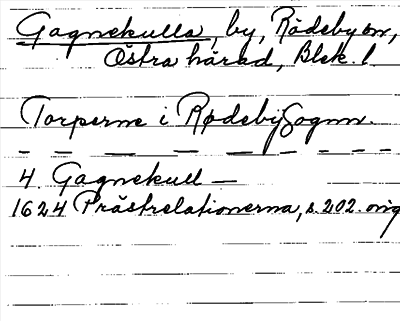 Gagnekulla, by, Rödeby sn,
Östra härad, Blek. l.
Torperne i Rødeby Sognn.
4. Gagnekull —
1624 Prästrelationerna, s. 202. orig